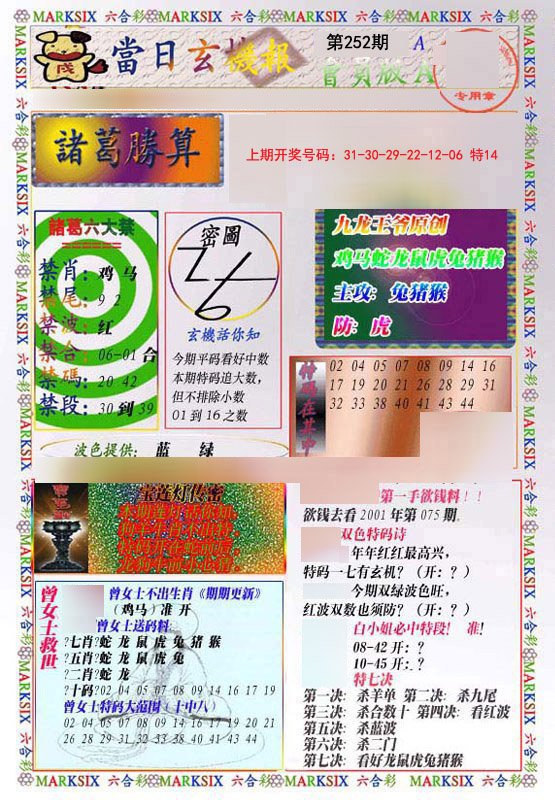 MARKSIX 六合彩 MARKSIX 六合彩 MARKSIX 六合彩 MARKSIX 六合彩 MARKSIX
當日玄機報
第252期
A
會員版A
专用章
諸葛勝算
上期开奖号码：31-30-29-22-12-06 特14
諸葛六大禁
禁肖：鸡 马
禁尾：9 2
禁波：红
禁合：06-01合
禁碼：20 42
禁段：30到39
密圖
玄機話你知
今期平码看好中数
本期特码追大数，
但不排除小数
01到16之数
九龙王爷原创
鸡马蛇龙鼠虎兔猪猴
主攻：兔猪猴
防：虎
特码在其中
02 04 05 07 08 09 14 16
17 19 20 21 26 28 29 31
32 33 38 40 41 43 44
波色提供： 蓝 绿
宝莲灯传密
第一手欲钱料！！
欲钱去看2001年第075期.
双色特码诗
年年红红最高兴，
特码一七有玄机？（开：？）
今期双绿波色旺，
红波双数也须防？（开：？）
白小姐必中特段！ 准！
08-42 开：？
10-45 开：？
特七决
第一决：杀羊单 第二决：杀九尾
第三决：杀合数十 第四决：看红波
第五决：杀蓝波
第六决：杀二门
第七决：看好龙鼠虎兔猪猴
曾女士救世
曾女士不出生肖《期期更新》
（鸡马）准 开
曾女士送码料：
?七肖?蛇 龙 鼠 虎 兔 猪 猴
?五肖?蛇 龙 鼠 虎 兔
?二肖?蛇 龙
?十码?02 04 05 07 08 09 14 16 17 19
曾女士特码大范围（十中八）
02 04 05 07 08 09 14 16 17 19 20 21
26 28 29 31 32 33 38 40 41 43 44
MARKSIX 六合彩 MARKSIX 六合彩 MARKSIX 六合彩 MARKSIX 六合彩 MARKSIX